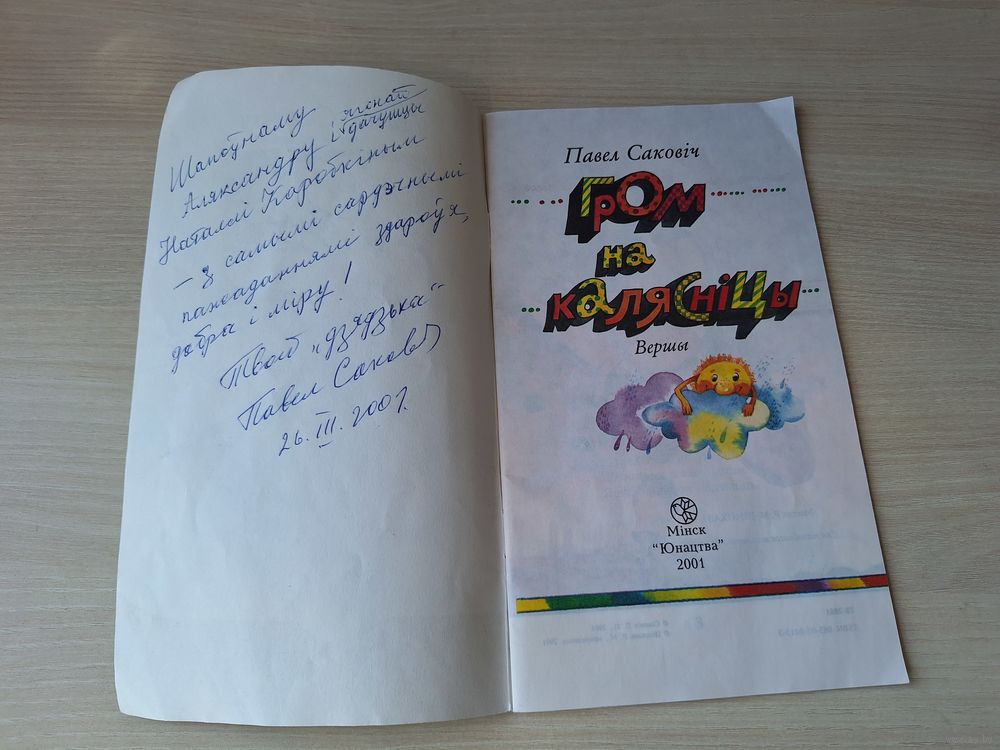 Шаноўнаму
Аляксандру і яснай
дачушцы
Наталлі Каробкіным
– з самымі сардэчнымі
пажаданнямі здароўя,
дабра і міру!
Твой „дзядзька“
Павел Саковіч
26. III. 2001.
Павел Саковіч
Гром
на
калясніцы
Вершы
Мінск
“Юнацтва”
2001